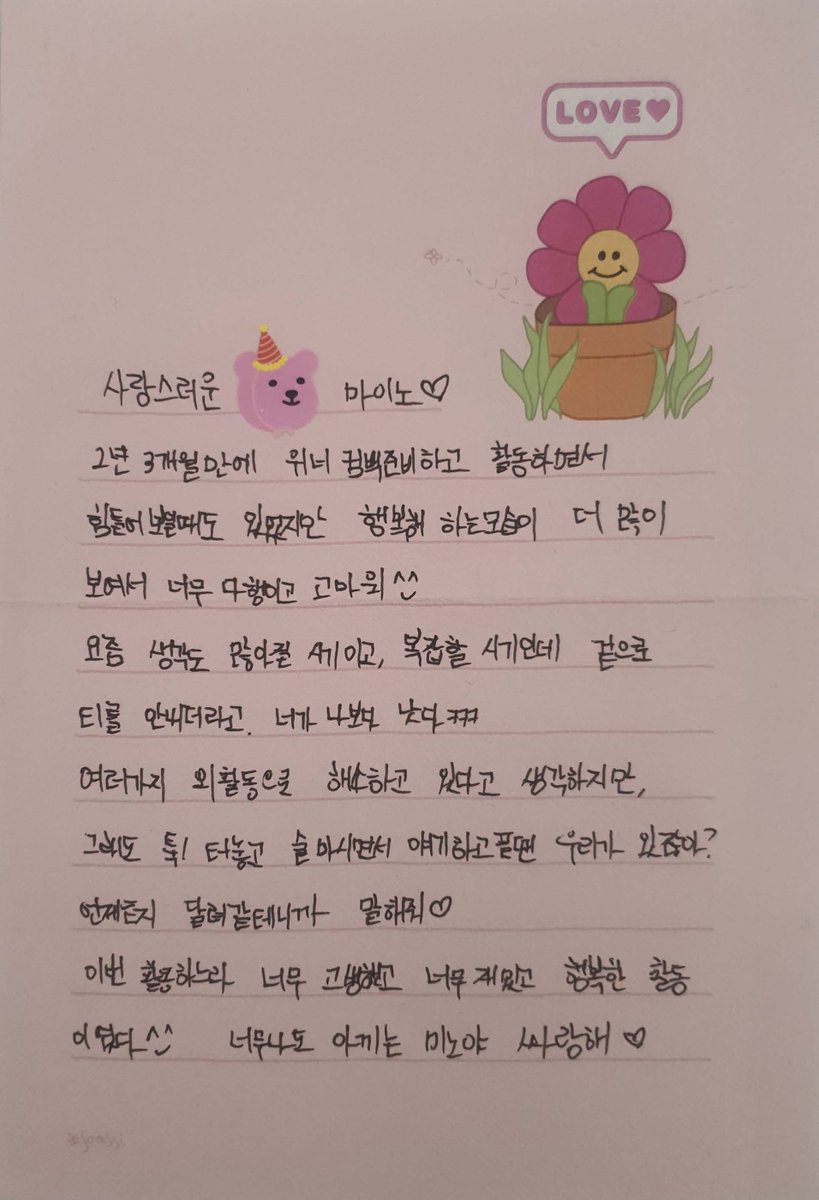 LOVE♥
사랑스러운 마이노♡
2년 3개월만에 위너 컴백준비하고 활동하면서
힘들어 보일때도 있었지만 행복해 하는모습이 더 많이
보여서 너무 다행이고 고마워^^
요즘 생각도 많아질 시기이고, 복잡할 시기인데 겉으로
티를 안내더라고. 너가 나보다 낫다ㅋㅋㅋ
여러가지 외활동으로 해소하고 있다고 생각하지만,
그래도 툭! 터놓고 술마시면서 얘기하고플땐 우리가 있잖아?
언제든지 달려갈테니까 말해줘♡
이번 활동하느라 너무 고생했고 너무재밌고 행복한 활동
이였다^^ 너무나도 아끼는 미노야 싸랑해♡